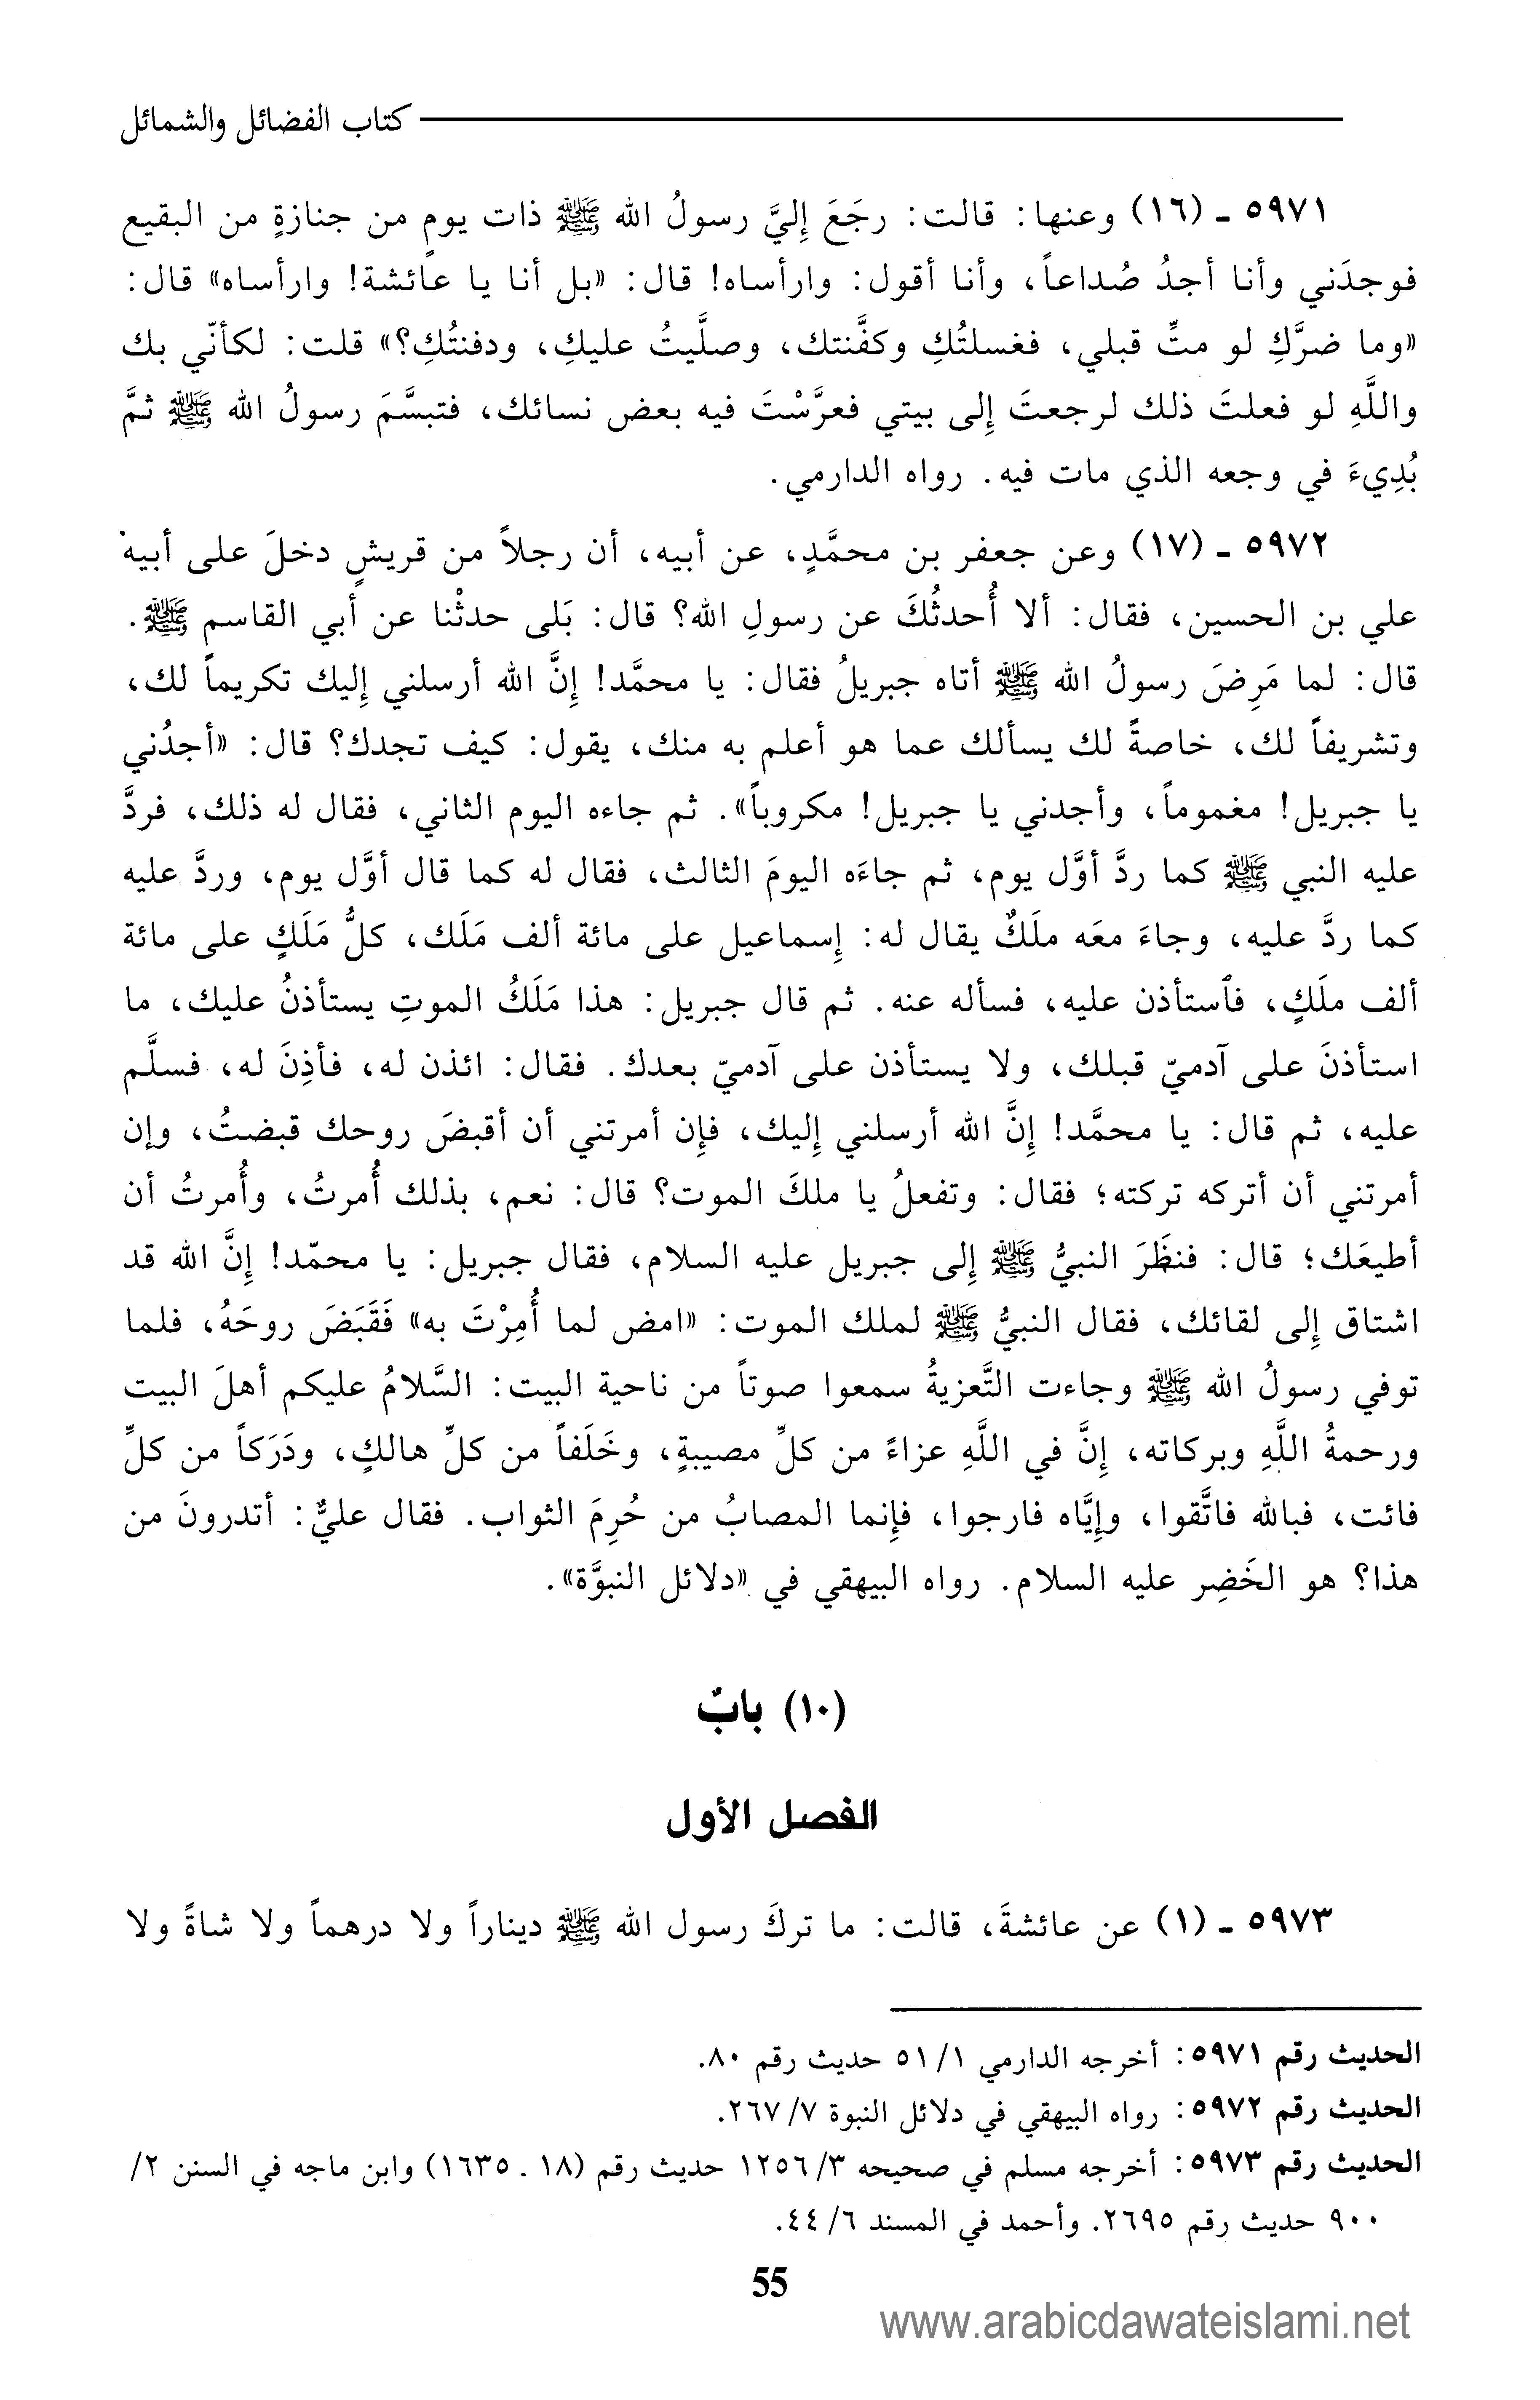 كتاب الفضائل والشمائل
٥٩٧١ ـ (١٦) وعنها: قالت: رجَعَ إِليَّ رسولُ الله ﷺ ذات يومٍ من جنازةٍ من البقيع
فوجدَني وأنا أجدُ صُداعاً، وأنا أقول: وارأساه! قال: «بل أنا يا عائشة! وارأساه» قال:
«وما ضرَّكِ لو متِّ قبلي، فغسلتُكِ وكفَّنتك، وصلَّيتُ عليكِ، ودفنتُكِ؟» قلت: لكأنّي بك
واللَّهِ لو فعلتَ ذلك لرجعتَ إِلى بيتي فعرَّسْتَ فيه بعض نسائك، فتبسَّمَ رسولُ الله ﷺ ثمَّ
بُدِيءَ في وجعه الذي مات فيه. رواه الدارمي.
٥٩٧٢ ـ (١٧) وعن جعفر بن محمَّدٍ، عن أبيه، أن رجلاً من قريشٍ دخلَ على أبيه
علي بن الحسين، فقال: ألا أُحدثُكَ عن رسولِ الله؟ قال: بَلى حدثْنا عن أبي القاسم ﷺ.
قال: لما مَرِضَ رسولُ الله ﷺ أتاه جبريلُ فقال: يا محمَّد! إِنَّ الله أرسلني إِليك تكريماً لك،
وتشريفاً لك، خاصةً لك يسألك عما هو أعلم به منك، يقول: كيف تجدك؟ قال: «أجدُني
يا جبريل! مغموماً، وأجدني يا جبريل! مكروباً». ثم جاءه اليوم الثاني، فقال له ذلك، فردَّ
عليه النبي ﷺ كما ردَّ أوَّل يوم، ثم جاءَه اليومَ الثالث، فقال له كما قال أوَّل يوم، وردَّ عليه
كما ردَّ عليه، وجاءَ معَه ملَكٌ يقال له: إِسماعيل على مائة ألف مَلَك، كلُّ مَلَكٍ على مائة
ألف ملَكٍ، فٱستأذن عليه، فسأله عنه. ثم قال جبريل: هذا مَلَكُ الموتِ يستأذنُ عليك، ما
استأذنَ على آدميّ قبلك، ولا يستأذن على آدميّ بعدك. فقال: ائذن له، فأذِنَ له، فسلَّم
عليه، ثم قال: يا محمَّد! إِنَّ الله أرسلني إِليك، فإِن أمرتني أن أقبضَ روحك قبضتُ، وإن
أمرتني أن أتركه تركته؛ فقال: وتفعلُ يا ملكَ الموت؟ قال: نعم، بذلك أُمرتُ، وأُمرتُ أن
أطيعَك؛ قال: فنظَرَ النبيُّ ﷺ إِلى جبريل عليه السلام، فقال جبريل: يا محمّد! إِنَّ الله قد
اشتاق إِلى لقائك، فقال النبيُّ ﷺ لملك الموت: «امض لما أُمِرْتَ به» فَقَبَضَ روحَهُ، فلما
توفي رسولُ الله ﷺ وجاءت التَّعزيةُ سمعوا صوتاً من ناحية البيت: السَّلامُ عليكم أهلَ البيت
ورحمةُ اللَّهِ وبركاته، إِنَّ في اللَّهِ عزاءً من كلِّ مصيبةٍ، وخَلَفاً من كلِّ هالكٍ، ودَرَكاً من كلِّ
فائت، فبالله فاتَّقوا، وإِيَّاه فارجوا، فإِنما المصابُ من حُرِمَ الثواب. فقال عليٌّ: أتدرونَ من
هذا؟ هو الخَضِر عليه السلام. رواه البيهقي في «دلائل النبوَّة».
(١٠) بابٌ
الفصل الأول
٥٩٧٣ ـ (١) عن عائشةَ، قالت: ما تركَ رسول الله ﷺ ديناراً ولا درهماً ولا شاةً ولا
الحديث رقم ٥٩٧١: أخرجه الدارمي ٥١/١ حديث رقم ٨٠.
الحديث رقم ٥٩٧٢: رواه البيهقي في دلائل النبوة ٢٦٧/٧.
الحديث رقم ٥٩٧٣: أخرجه مسلم في صحيحه ١٢٥٦/٣ حديث رقم (١٨ . ١٦٣٥) وابن ماجه في السنن ٢/
٩٠٠ حديث رقم ٢٦٩٥. وأحمد في المسند ٤٤/٦.
55
www.arabicdawateislami.net